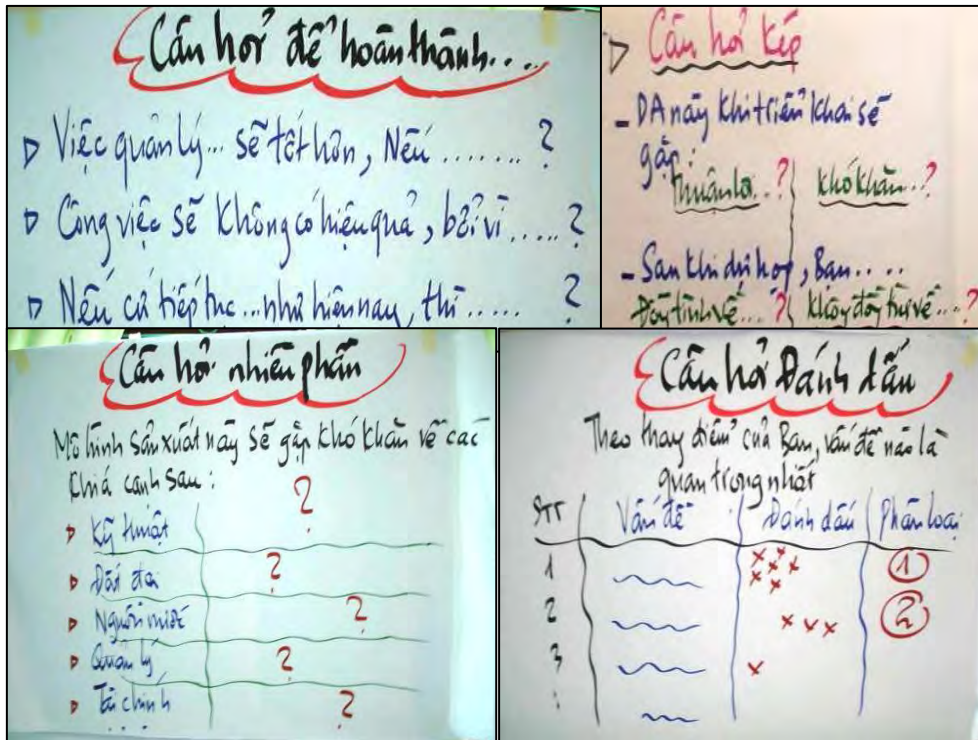 Câu hỏi để hoàn thành....
Việc quản lý... sẽ tốt hơn, Nếu ....... ?
Công việc sẽ không có hiệu quả, bởi vì ..... ?
Nếu cứ tiếp tục ... như hiện nay, thì ..... ?
Câu hỏi kép
- DA này khi triển khai sẽ
gặp:
Thuận lợi..? Khó khăn..?
- Sau khi dự họp, Bạn....
Đồng tình về...? Không đồng tình về...?
Câu hỏi nhiều phần
Mô hình sản xuất này sẽ gặp khó khăn về các
khiá cạnh sau: ?
Kỹ thuật
Đất đai ?
Nguồn nước ?
Quản lý ?
Tài chính ?
......
Câu hỏi Đánh dấu
Theo thay điểm của Bạn, vấn đề nào là
quan trọng nhất
STT Vấn đề Đánh dấu Phân loại
1 x x x x x 1
2 x x x 2
3 x
: